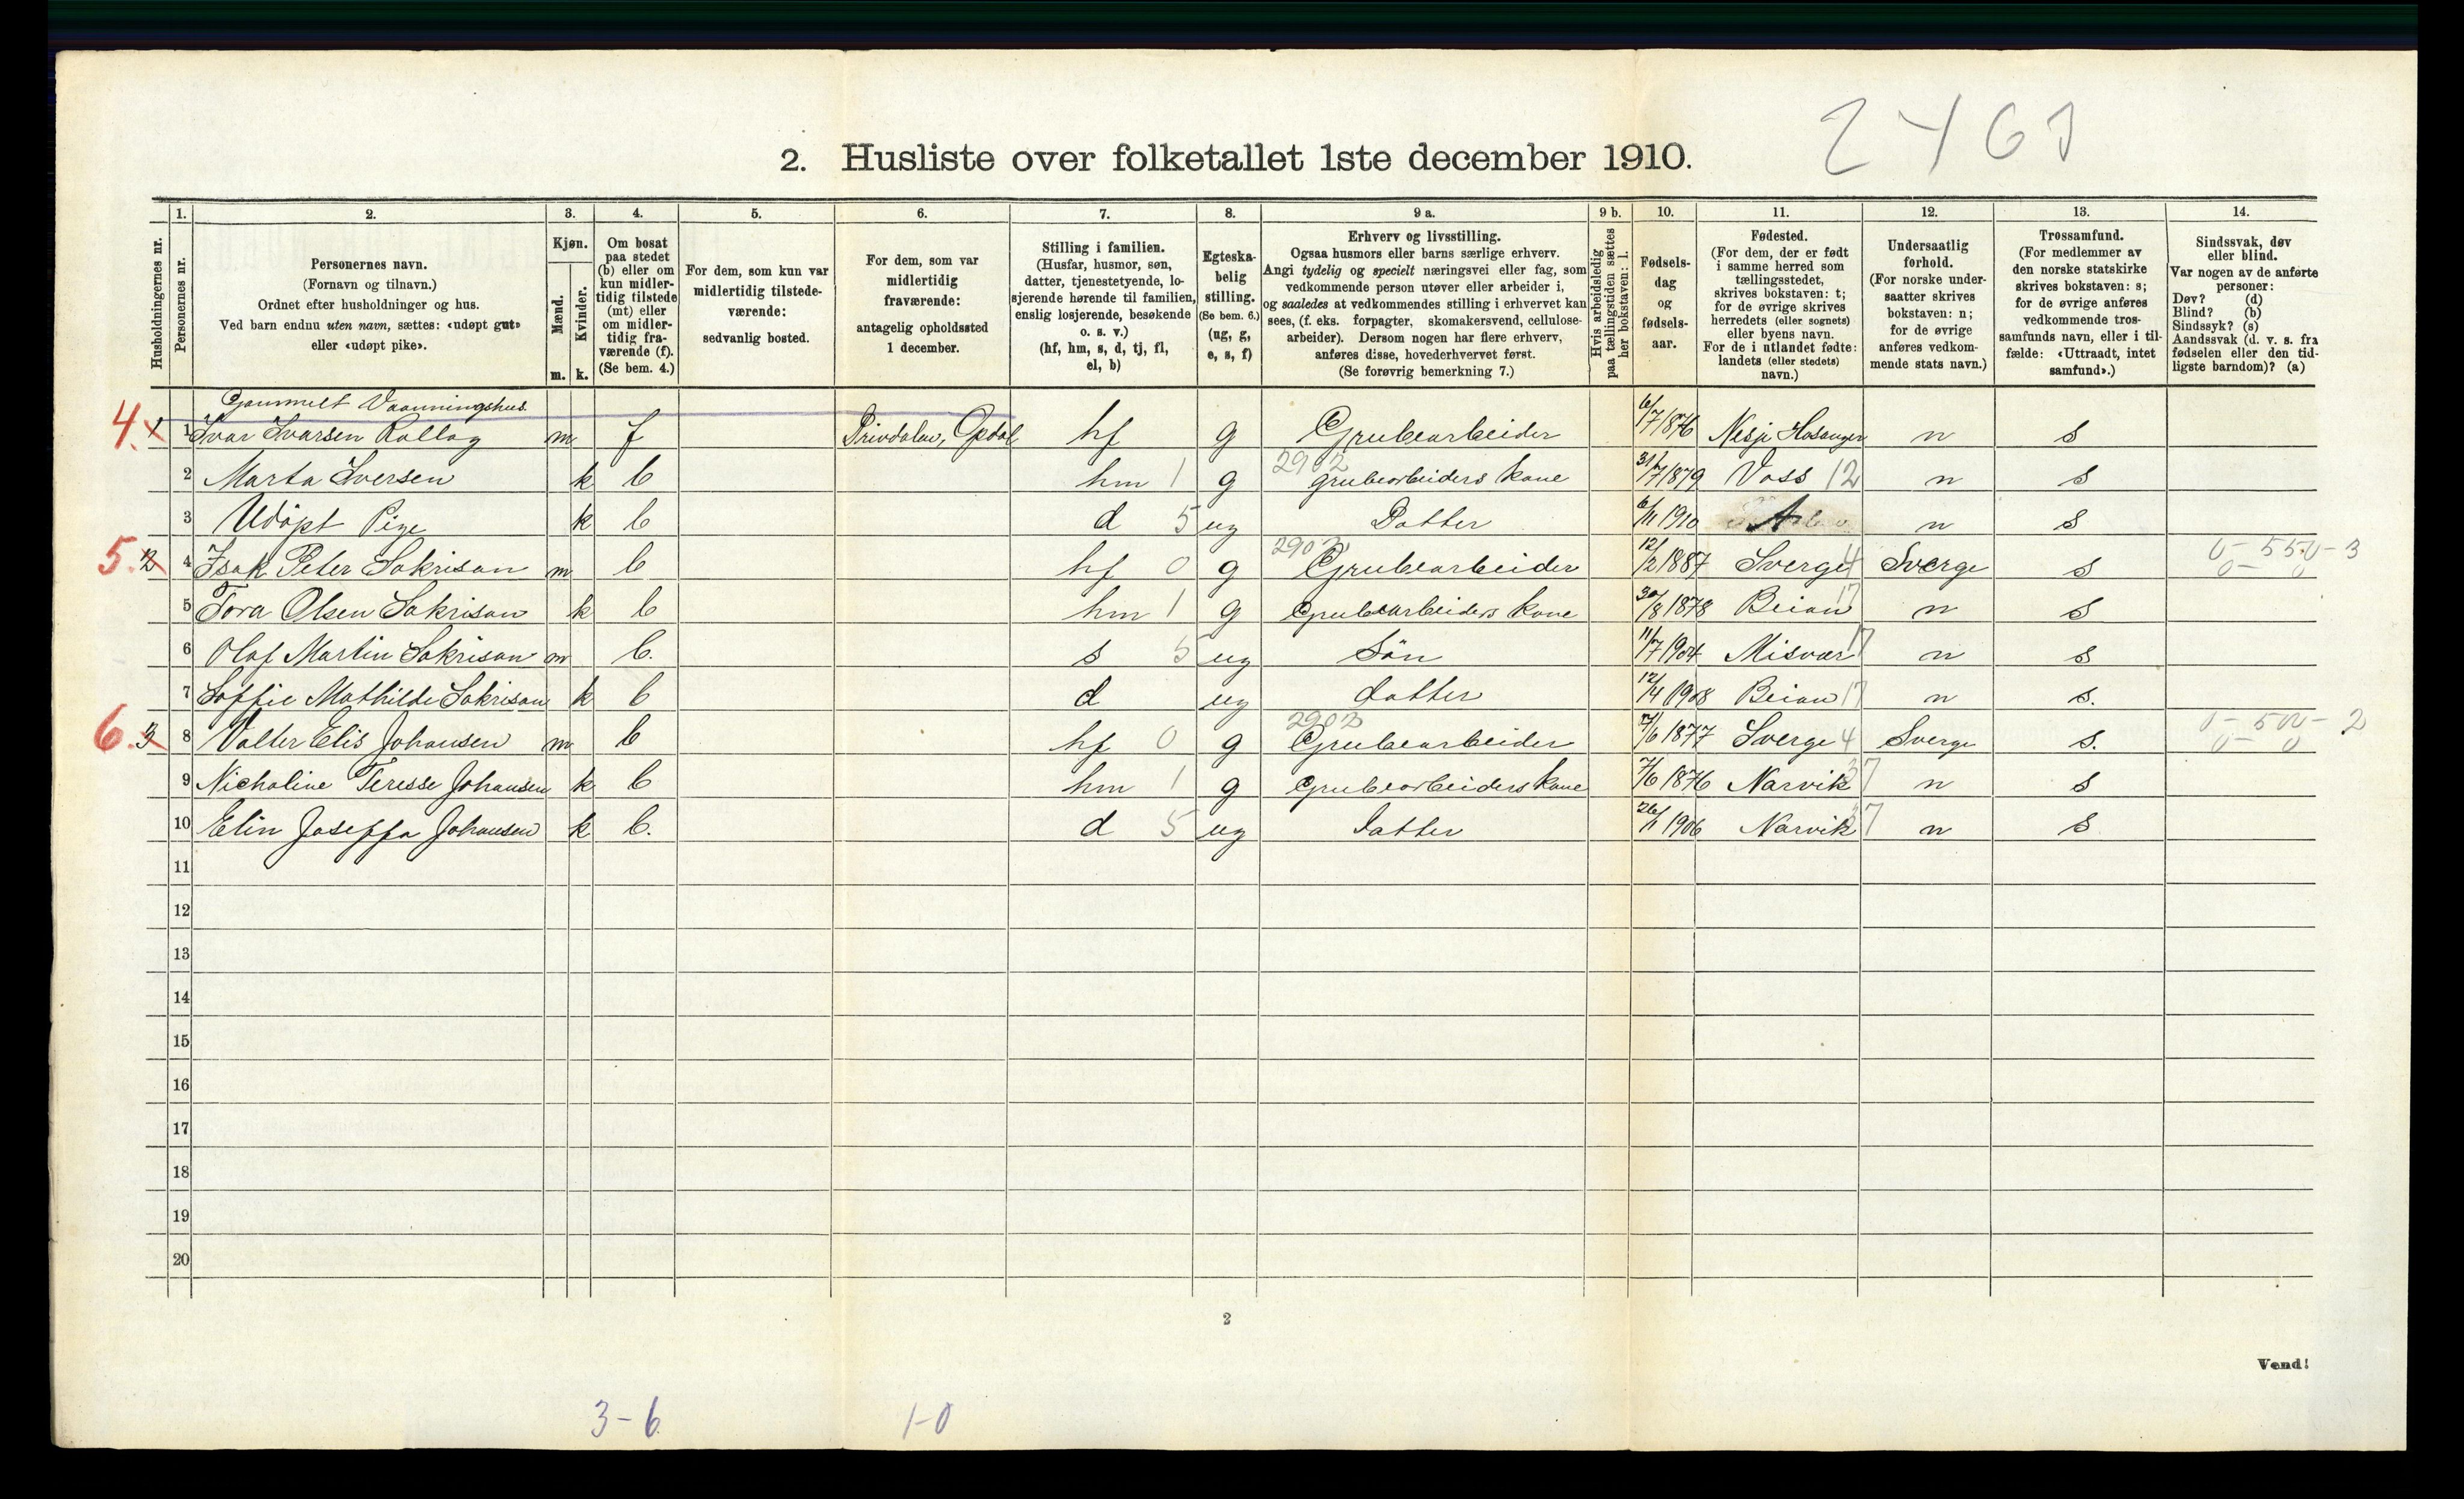 2463
2. Husliste over folketallet 1ste december 1910.
Husholdningernes nr.
1. 2. 3. 4. 5. 6. 7. 8. 9 a. 9 b. 10. 11. 12. 13. 14.
Personernes nr.
Personernes navn.
(Fornavn og tilnavn.)
Ordnet efter husholdninger og hus.
Ved barn endnu uten navn, sættes: «udøpt gut»
eller «udøpt pike».
Kjøn.
Mænd.
Kvinder.
m. k.
Om bosat
paa stedet
(b) eller om
kun midler-
tidig tilstede
(mt) eller
om midler-
tidig fra-
værende (f).
(Se bem. 4.)
For dem, som kun var
midlertidig tilstede-
værende:
sedvanlig bosted.
For dem, som var
midlertidig
fraværende:
antagelig opholdssted
1 december.
Stilling i familien.
(Husfar, husmor, søn,
datter, tjenestetyende, lo-
sjerende hørende til familien,
enslig losjerende, besøkende
o. s. v.)
(hf, hm, s, d, tj, fl,
el, b)
Egteska-
belig
stilling.
(Se bem. 6.)
(ug, g,
e, s, f)
Erhverv og livsstilling.
Ogsaa husmors eller barns særlige erhverv.
Angi tydelig og specielt næringsvei eller fag, som
vedkommende person utøver eller arbeider i,
og saaledes at vedkommendes stilling i erhvervet kan
sees, (f. eks. forpagter, skomakersvend, cellulose-
arbeider). Dersom nogen har flere erhverv,
anføres disse, hovederhvervet først.
(Se forøvrig bemerkning 7.)
Hvis arbeidsledig
paa tællingstiden sættes
her bokstaven: l.
Fødsels-
dag
og
fødsels-
aar.
Fødested.
(For dem, der er født
i samme herred som
tællingsstedet,
skrives bokstaven: t;
for de øvrige skrives
herredets (eller sognets)
eller byens navn.
For de i utlandet fødte:
landets (eller stedets)
navn.)
Undersaatlig
forhold.
(For norske under-
saatter skrives
bokstaven: n;
for de øvrige
anføres vedkom-
mende stats navn.)
Trossamfund.
(For medlemmer av
den norske statskirke
skrives bokstaven: s;
for de øvrige anføres
vedkommende tros-
samfunds navn, eller i til-
fælde: «Uttraadt, intet
samfund».)
Sindssvak, døv
eller blind.
Var nogen av de anførte
personer:
Døv? (d)
Blind? (b)
Sindssyk? (s)
Aandssvak (d. v. s. fra
fødselen eller den tid-
ligste barndom)? (a)
Gammelt Vaanningshus
4. 1 1 Ivar Ivarsen Rallag m f Drivdalen, Opdal hf g Grubearbeider 6/7 1876 Nesje Hosanger n s
2 Marta Iversen k b hm 1 g 2902 grubearbeiders kone 31/7 1879 Voss 12 n s
3 Udöpt Pige k b d 5 ug Datter 6/11 1910 n s
5. 2 4 Isak Peter Sakrisan m b hf 0 g 2902 Grubearbeider 12/2 1887 Sverge 4 Sverge s 0-550-3
5 Tora Olsen Sakrisan k b hm 1 g Grubearbeiders kone 30/8 1878 Beian 17 n s
6 Olaf Martin Sakrisan m b. s 5 ug Sön 11/7 1904 Misvær 17 n s
7 Soffie Mathilde Sakrisan k b d ug datter 12/4 1908 Beian 17 n s.
6. 3 8 Valter Elis Johansen m b hf 0 g 2902 Grubearbeider 7/6 1877 Sverge 4 Sverge s. 2
9 Nicholine Teresse Johansen k b hm 1 g Grubearbeiders kone 7/6 1876 Narvik 37 n s
10 Elin Joseffa Johansen k b. d 5 ug Datter 26/1 1906 Narvik 37 n s
11
12
13
14
15
16
17
18
19
20
2
Vend!
3-6 1-0